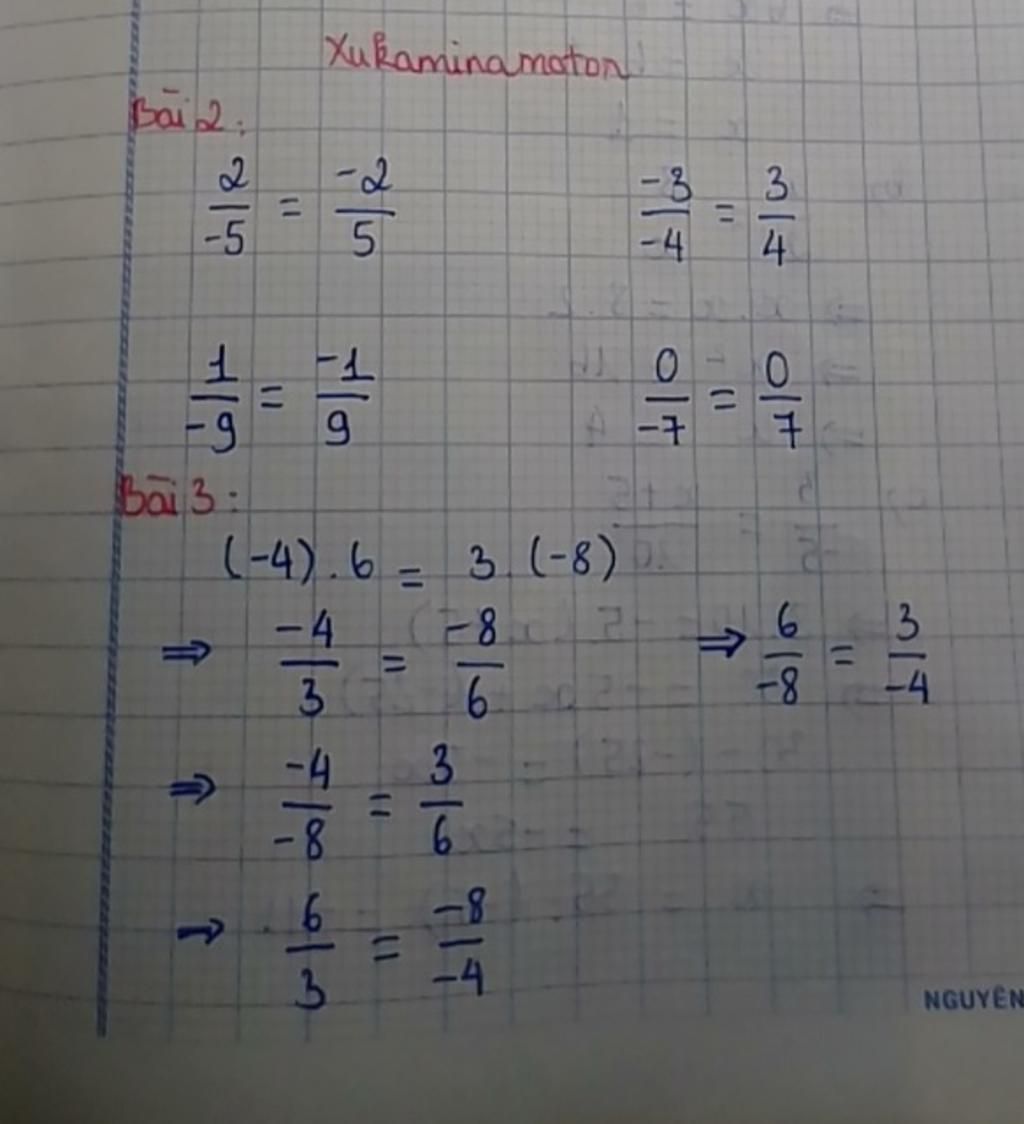 Xukaminamoton
Bài 2:
2/-5 = -2/5    -3/-4 = 3/4
1/-9 = -1/9    0/-7 = 0/7
Bài 3:
(-4) . 6 = 3 . (-8)
⇒ -4/3 = -8/6    ⇒ 6/-8 = 3/-4
⇒ -4/-8 = 3/6
⇒ 6/3 = -8/-4
NGUYÊN